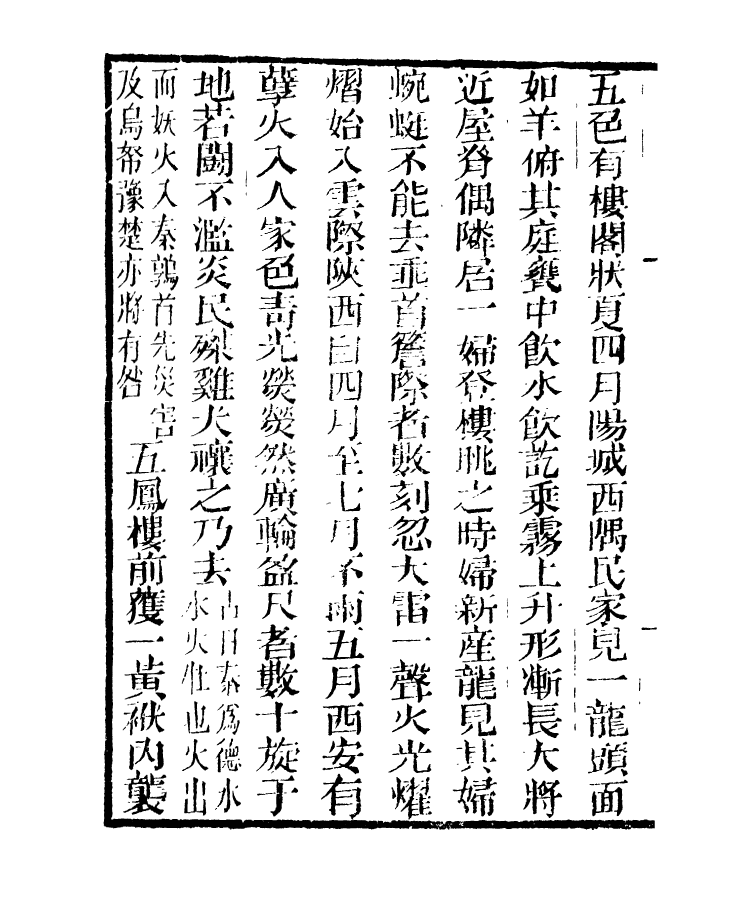 五色有樓閣狀夏四月陽城西隅民家見一龍頭面
如羊俯其庭甕中飲水飲訖乘霧上升形漸長大將
近屋脊偶隣居一婦登樓眺之時婦新産龍見其婦
蜿蜒不能去乖首簷際者數刻忽大雷一聲火光燿
熠始入雲際陝西自四月至七月不雨五月西安有
孽火入人家色青光熒熒然廣輪盈尺者數十旋于
地若鬬不濫炎民殺雞犬禳之乃去占曰秦爲德水水火牡也火出
而妖火入秦鶉首先災害及烏帑豫楚亦將有咎五鳳樓前獲一黃袱內襲